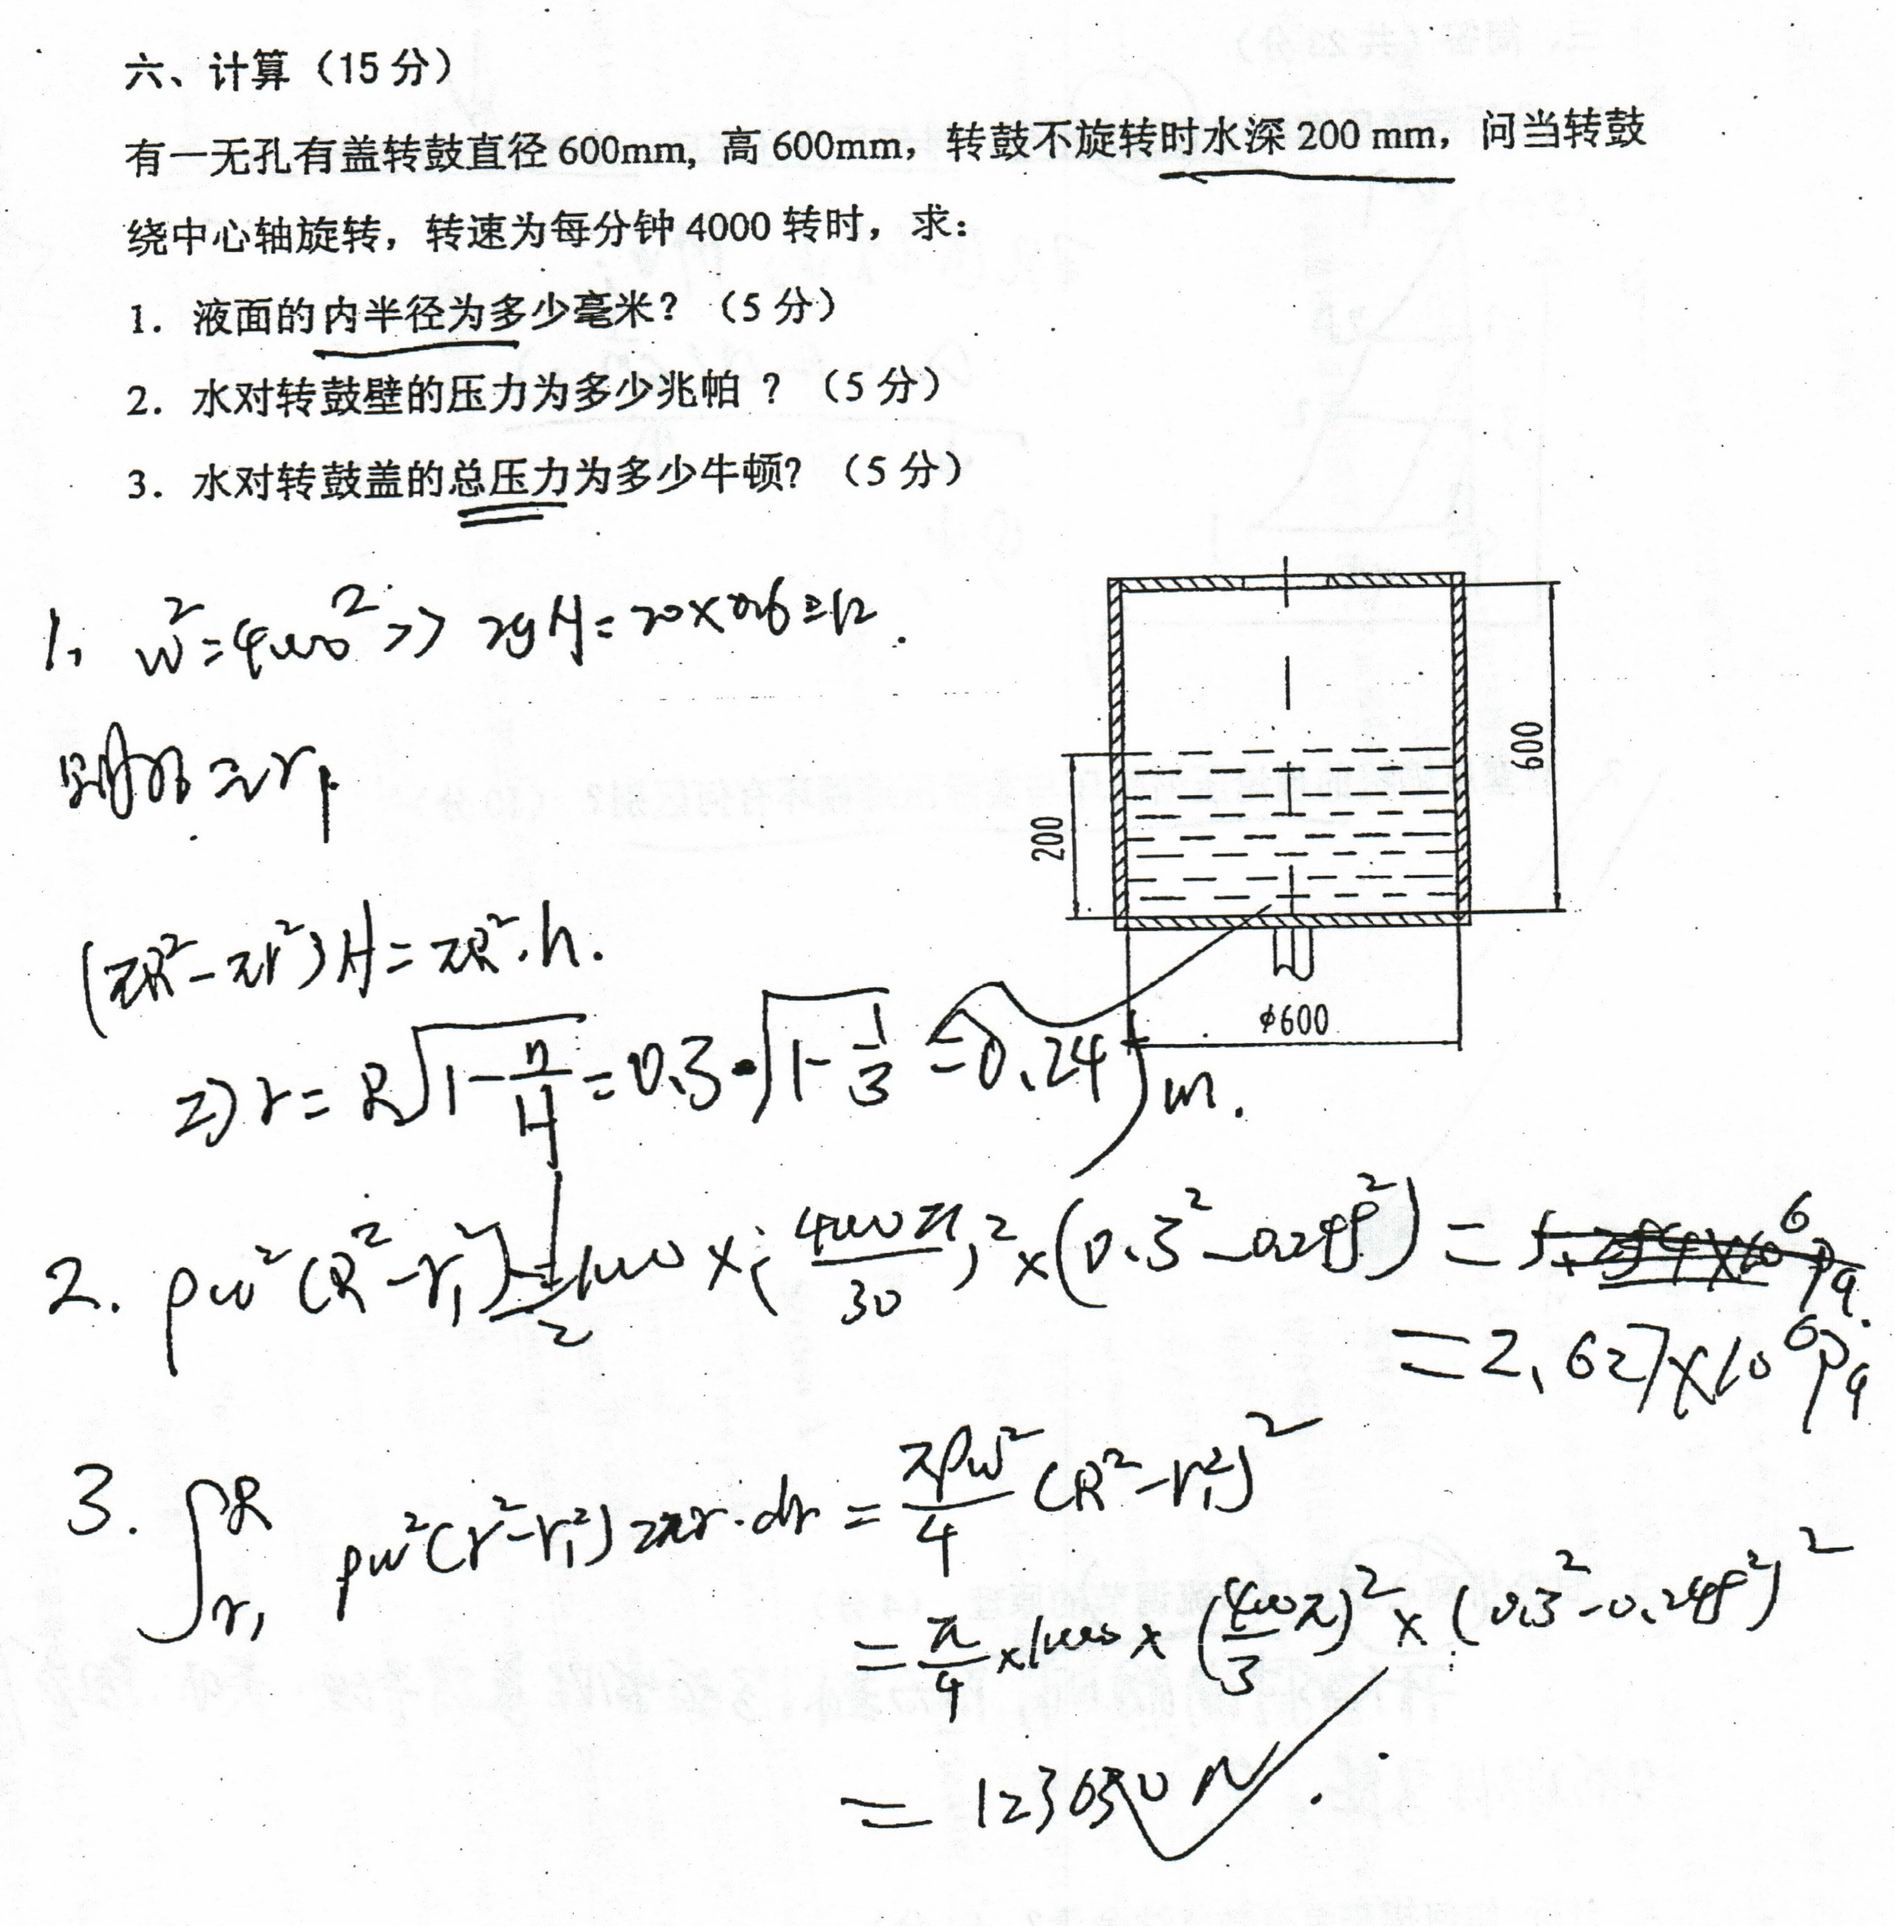 六、计算（15分）
有一无孔有盖转鼓直径600mm, 高600mm，转鼓不旋转时水深200 mm，问当转鼓
绕中心轴旋转，转速为每分钟4000转时，求：
1. 液面的内半径为多少毫米？（5分）
2. 水对转鼓壁的压力为多少兆帕 ？（5分）
3. 水对转鼓盖的总压力为多少牛顿？（5分）
1, w²=4000² >> 2gH=20×0.6=12.
则
(πR²-πr²)H=πR²·h.
=> r=R√(1-h/H)=0.3·√(1-1/3)=0.24 m.
2. ρw²(R²-r₁²)1/2=1/2 1000×(4000π/30)²×(0.3²-0.248²)=
=2.627×10⁶Pa
3. ∫ R r₁ ρw²(r²-r₁²)2πr·dr = πρw²/4 (R²-r₁²)²
=π/4×1000×(400/3 π)²×(0.3²-0.248²)²
= 123650 N.
200
600
ϕ600